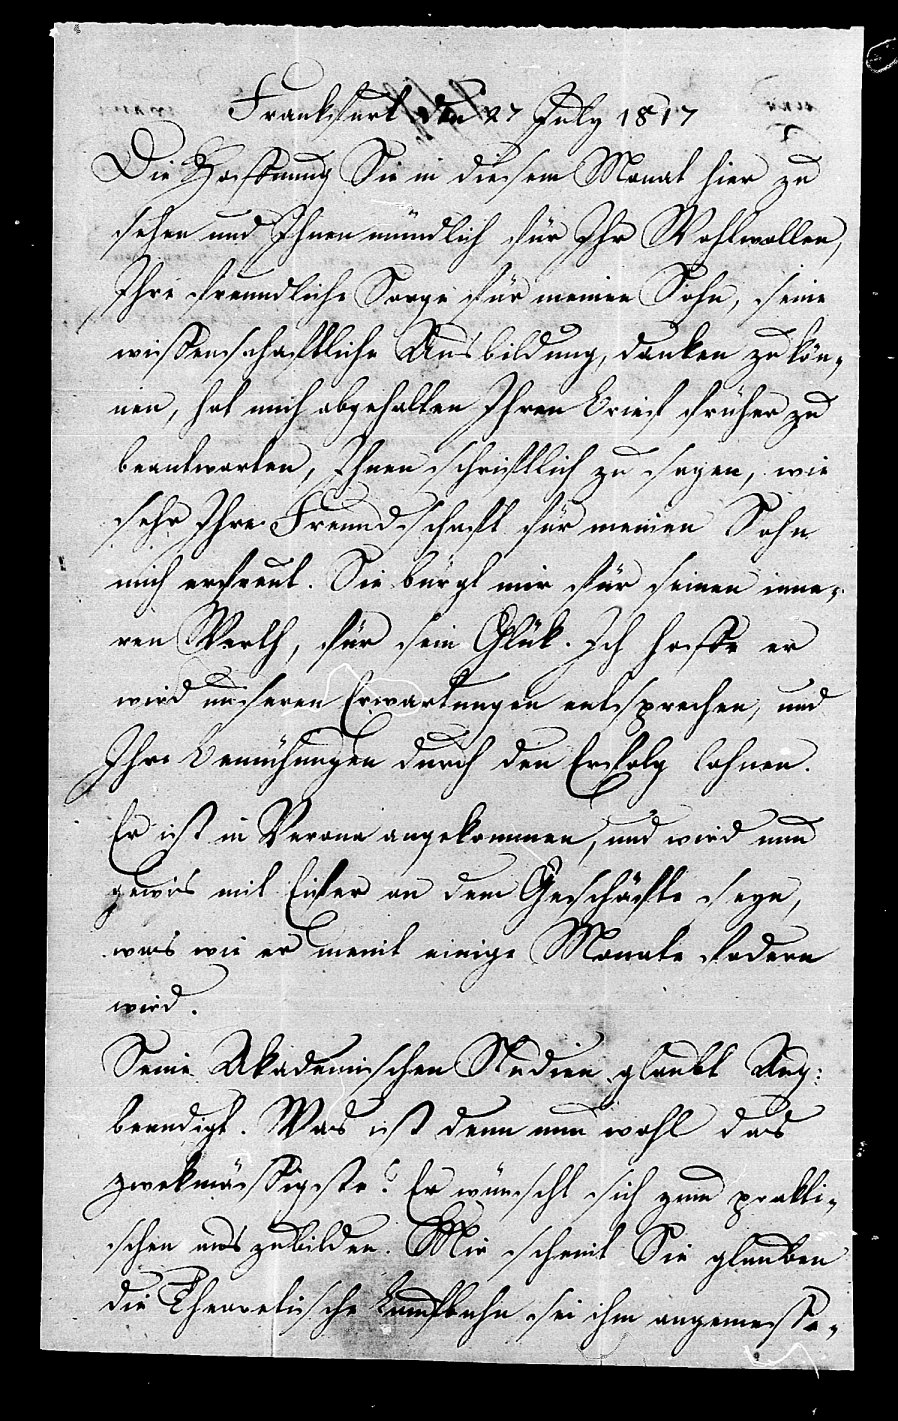 Frankfurt den 27 July 1817
Die Hoffnung Sie in diesem Monat hier zu
sehen und Ihnen mündlich für Ihr Wohlwollen,
Ihre freundliche Sorge für meinen Sohn, seine
wissenschaftliche Ausbildung, danken zu kön-
nen, hat mich abgehalten Ihren Brief früher zu
beantworten, Ihnen schriftlich zu sagen, wie
sehr Ihre Freundschaft für meinen Sohn
mich erfreut. Sie bürgt mir für seinen inne-
ren Werth, für sein Glük. Ich hoffe er
wird unseren Erwartungen entsprechen, und
Ihre Bemühungen durch den Erfolg lohnen.
Er ist in Verona angekommen, und wird nun
gewis mit Eifer an dem Geschäfte seyn,
was wie er meint einige Monate fodern
wird.
Seine Akademischen Studien glaubt Aug:
beendigt. Was ist denn nun wohl das
zwekmässigste? Er wünscht sich zum prakti-
schen auszubilden. Mir scheint Sie glauben
die Theoretische Laufbahn sei ihm angemesse-